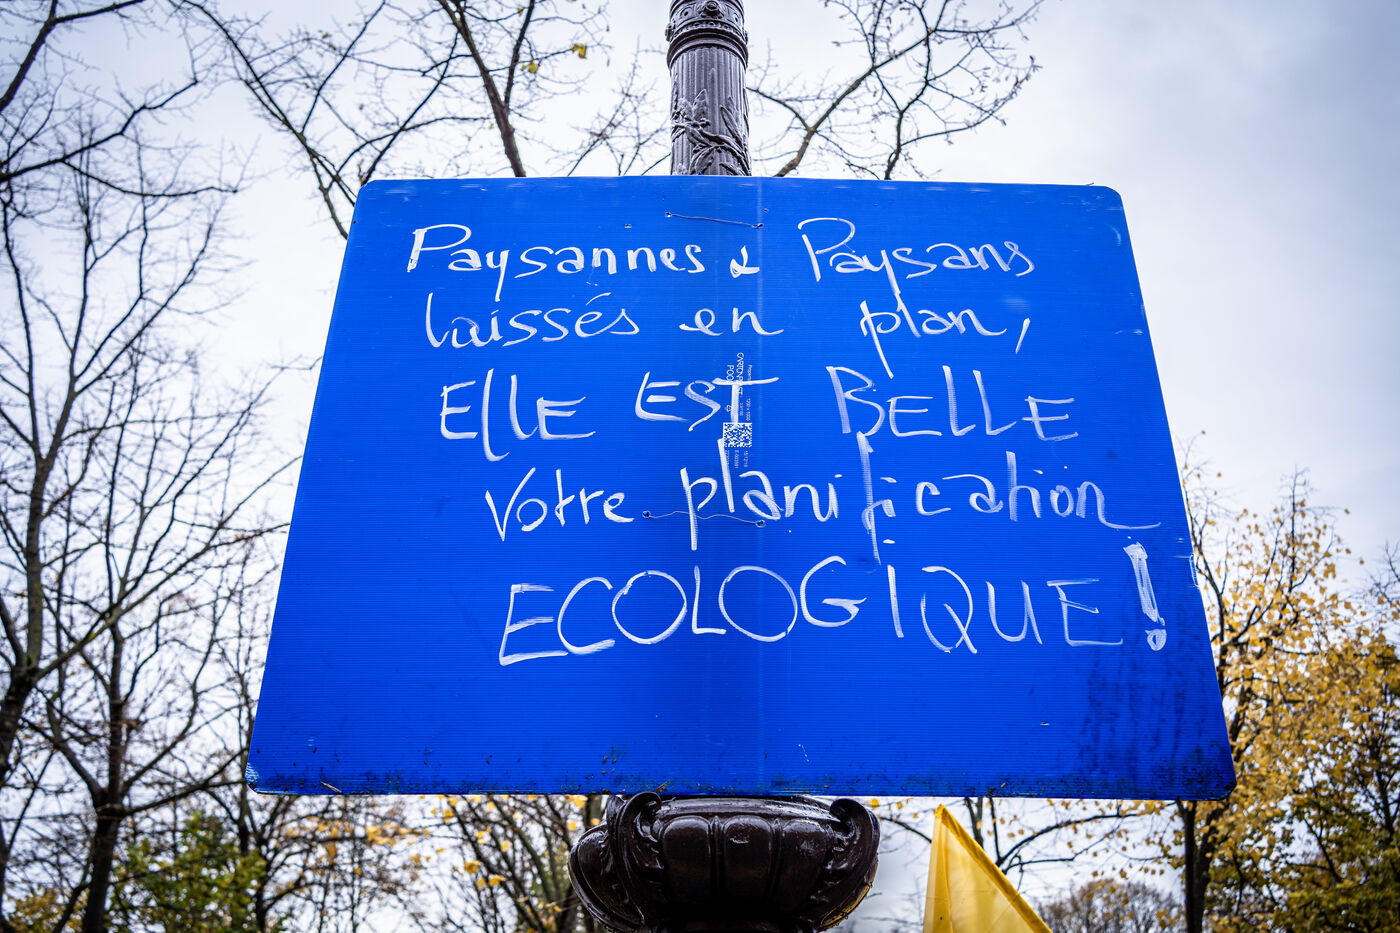 Paysannes & Paysans
laissés en plan,
EllE EST BELLE
Votre planification
ECOLOGIQUE !